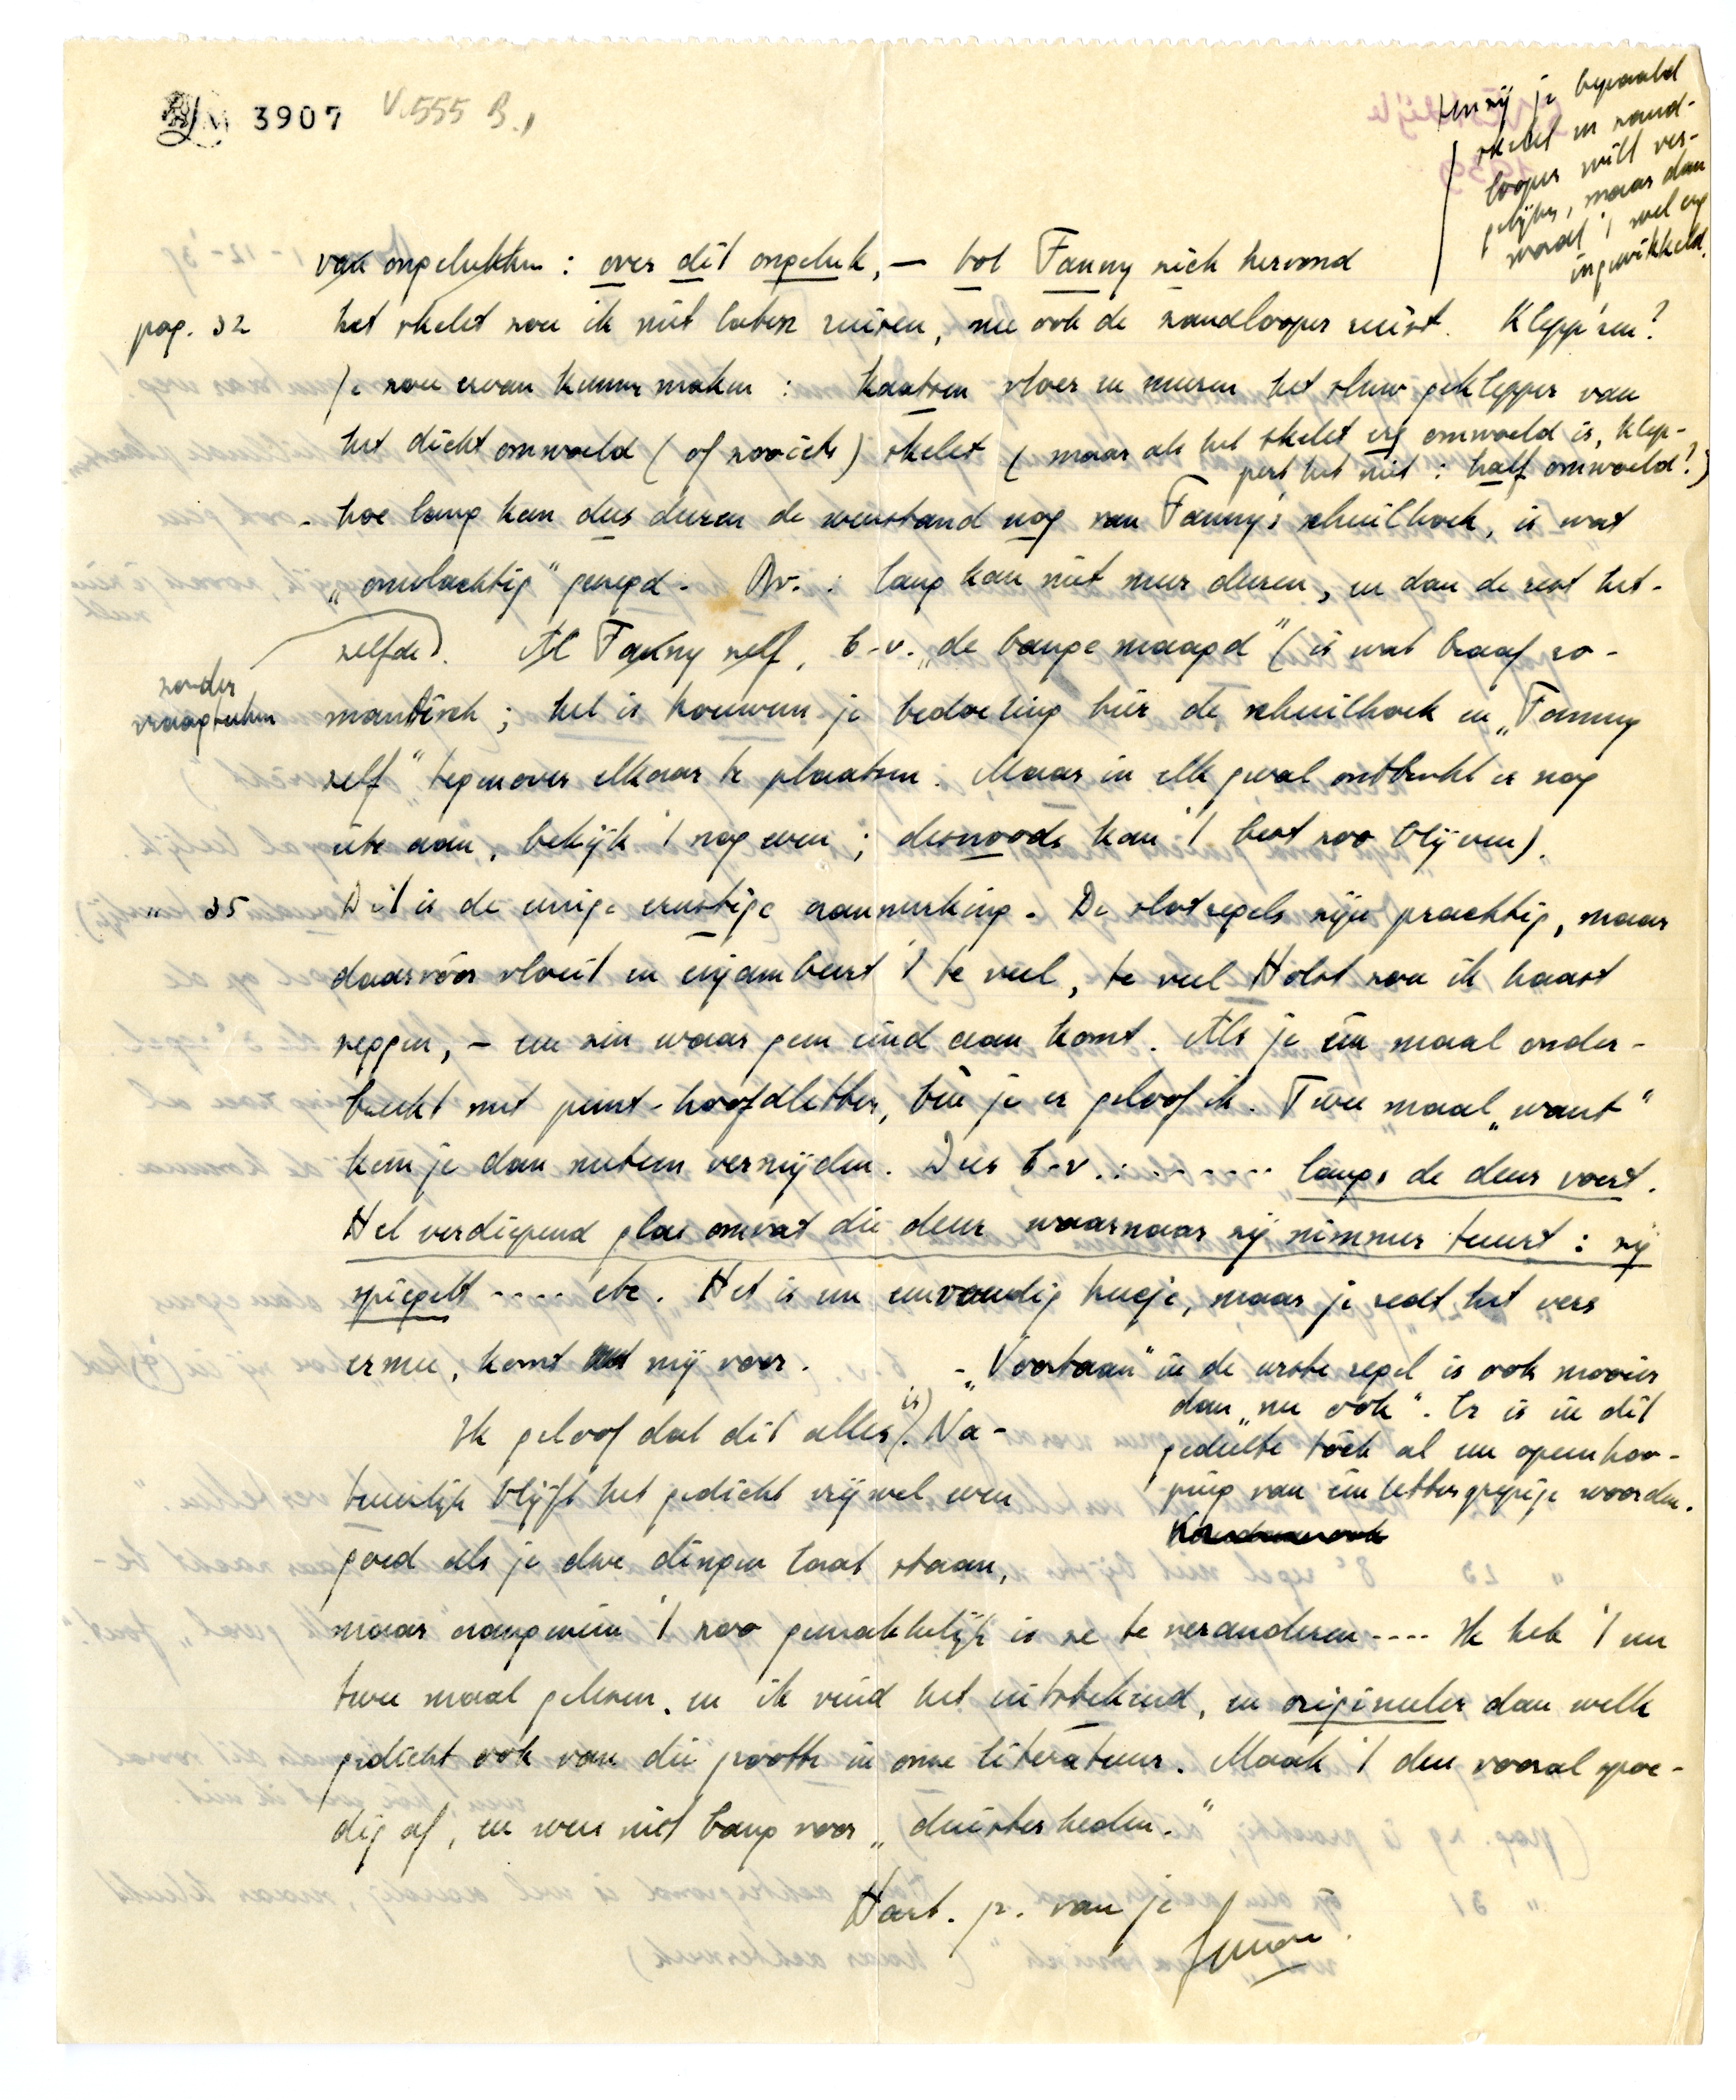 3907 V.555 B.
tenzij je bepaald
skelet en zand-
looper wilt ver-
gelijken, maar dan
wordt 't wel erg
ingewikkeld.
van ongelukken : over dit ongeluk, — tot Fanny zich hervond
pag. 32 het skelet zou ik niet laten ruisen, nu ook de zandlooper ruist. Klepp'ren?
Je zou ervan kunnen maken : kaatsen vloer en muren het sluw geklepper van
het dicht omwoeld (of zooiets) skelet (maar als het skelet erg omwoeld is, klep-
pert het niet : half omwoeld?)
- hoe lang kan dus duren de weerstand nog van Fanny's schuilhoek, is wat
„omslachtig" gezegd. Bv. : lang kan niet meer duren, en dan de rest het-
zelfde). Al Fanny zelf, b.v. „de bange maagd" (is wat braaf ro-
zonder
vraagteeken
mantisch ; het is trouwens je bedoeling hier de schuilhoek en „Fanny
zelf" tegenover elkaar te plaatsen. Maar in elk geval ontbreekt er nog
iets aan, bekijk 't nog even ; desnoods kan 't best zoo blijven).
" 35 Dit is de eenige ernstige aanmerking. De slotregels zijn prachtig, maar
daarvóór vloeit en enjambeert 't te veel, te veel Holst zou ik haast
zeggen, — een zin waar geen eind aan komt. Als je één maal onder-
breekt met punt-hoofdletter, ben je er geloof ik. Twee maal „want"
kun je dan meteen vermijden. Dus b.v. : ....... langs de deur voert.
Het verdiepend glas omvat die deur waarnaar zij nimmer tuurt : zij
spiegelt .... etc. Het is een eenvoudig trucje, maar je redt het vers
ermee, komt mij voor.
- „Voortaan" in de eerste regel is ook mooier
dan „nu ook". Er is in dit
gedeelte tòch al een opeenhoo-
ping van één lettergrepige woorden.
Ik geloof dat dit alles is. Na-
tuurlijk blijft het gedicht vrijwel even
goed als je deze dingen laat staan,
maar aangezien 't zoo gemakkelijk is ze te veranderen .... Ik heb 't nu
twee maal gelezen, en ik vind het uitstekend, en origineeler dan welk
gedicht ook van die grootte in onze literatuur. Maak 't dus vooral spoe-
dig af, en wees niet bang voor „duisterheden."
Hart. gr. van je
Simon.